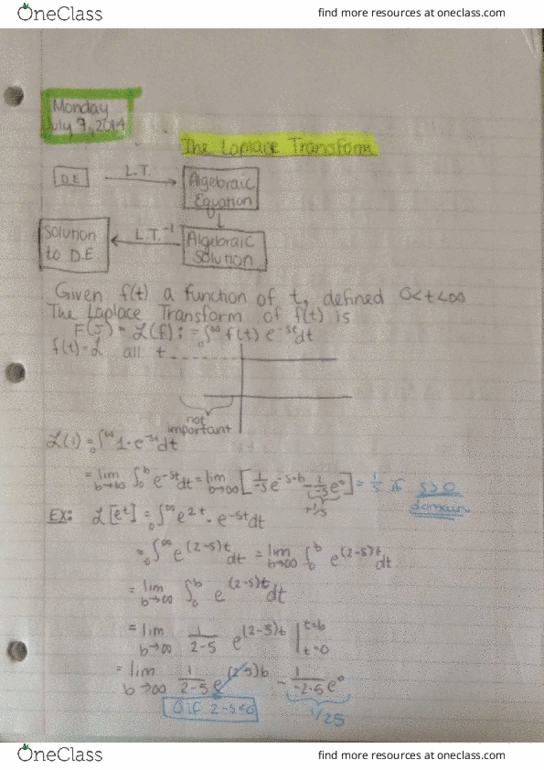 OneClass find more resources at oneclass.com
Monday
July 7, 2014
The Laplace Transform
D.E L.T. Algebraic
Equation
Solution
to D.E. L.T.⁻¹ Algebraic
Solution
Given f(t) a function of t, defined 0<t<∞
The Laplace Transform of f(t) is
F(s) = ℒ(f) := ₀∫^∞ f(t) e^-st dt
f(t)=1 all t
not
important
ℒ(1) = ₀∫^∞ 1·e^-st dt
= lim b→∞ ∫₀^b e^-st dt = lim b→∞ [1/-s e^-s·b - 1/-s e^0] = 1/s if s>0
+1/s domain
EX: ℒ[e^t] = ₀∫^∞ e^2t · e^-st dt
= ₀∫^∞ e^(2-s)t dt = lim b→∞ ∫₀^b e^(2-s)t dt
= lim b→∞ ∫₀^b e^(2-s)t dt
= lim b→∞ 1/2-s e^(2-s)t |t=b t=0
= lim b→∞ 1/2-s e^(2-s)b - 1/-2-s e^0
0 if 2-s<0 1/2s
OneClass find more resources at oneclass.com